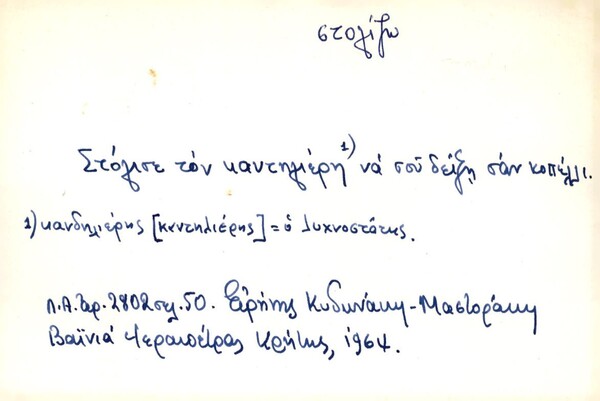 στολίζω
Στόλισε τὸν καντηλιέρη 1) νά σοῦ δείξῃ σάν κοπέλλι.
1) κανδηλιέρης [καντηλιέρης] = ὁ λυχνοστάτης.
Λ.Α. ἀρ. 2802 σελ. 50. Εἰρήνης Κυδωνάκη - Μαστοράκη
Βαϊνιά Ἱεραπέτρας Κρήτης, 1964.